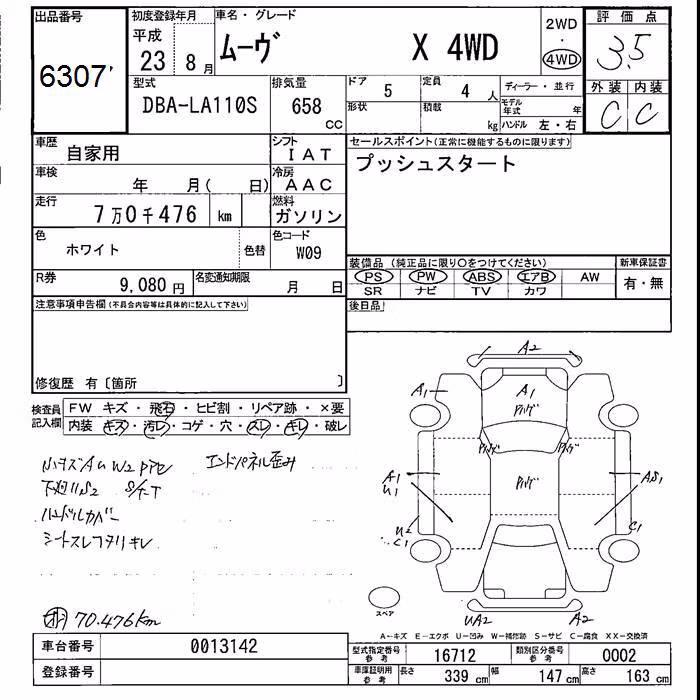 出品番号
6307
初度登録年月
平成
23 8月
車名・グレード
ムーヴ X 4WD
2WD
・
4WD
評価点
3.5
外装 内装
C C
型式
DBA-LA110S
排気量
658
CC
ドア 5
定員 4 人
形状
積載 kg
ディーラー・並行
モデル年式 年
ハンドル 左・右
車歴
自家用
シフト
IAT
車検
年 月( 日)
冷房
AAC
走行
7万0千476 km
燃料
ガソリン
色
ホワイト
色替
色コード
W09
R券
9,080 円
名変通知期限
月 日
セールスポイント(正常に機能するものに限ります)
プッシュスタート
装備品 (純正品に限り○をつけてください)
PS PW ABS エアB AW
SR ナビ TV カワ
新車保証書
有・無
後日品
注意事項申告欄(不具合内容等は具体的に記入して下さい)
修復歴 有〔箇所 〕
検査員記入欄
FW キズ・飛石・ヒビ割・リペア跡・×要
内装 キズ・汚レ・コゲ・穴・スレ・キレ・破レ
エンドパネル歪み
下廻りS2
ハンドルカバー
シートスレ
70.476km
A2
A1
A1
A1
U1
AS1
U2
C1
C1
UA2
A2
スペア
A-キズ E-エクボ U-凹み W-補修跡 S-サビ C-腐食 XX-交換済
車台番号
0013142
登録番号
型式指定番号 参考
16712
類別区分番号 参考
0002
車庫証明用 参考
長さ 339 cm
幅 147 cm
高さ 163 cm